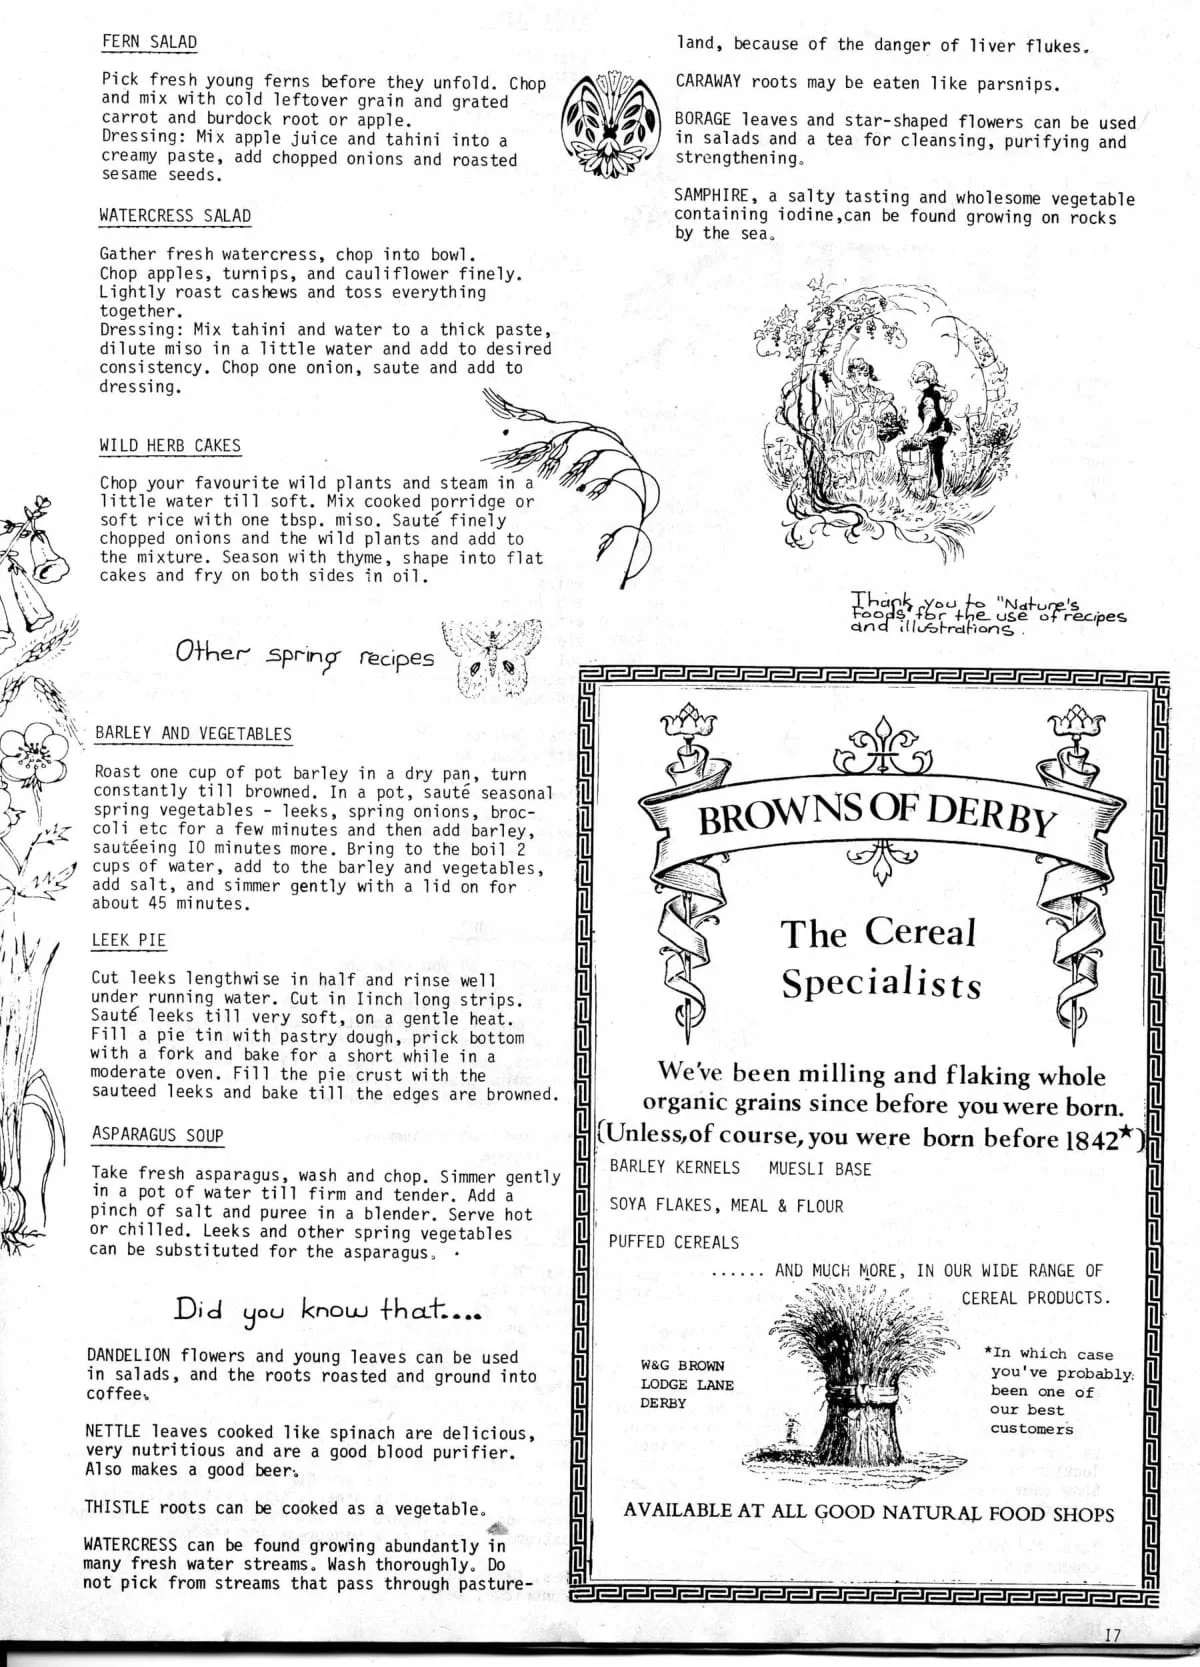 FERN SALAD
Pick fresh young ferns before they unfold. Chop
and mix with cold leftover grain and grated
carrot and burdock root or apple.
Dressing: Mix apple juice and tahini into a
creamy paste, add chopped onions and roasted
sesame seeds.
WATERCRESS SALAD
Gather fresh watercress, chop into bowl.
Chop apples, turnips, and cauliflower finely.
Lightly roast cashews and toss everything
together.
Dressing: Mix tahini and water to a thick paste,
dilute miso in a little water and add to desired
consistency. Chop one onion, saute and add to
dressing.
WILD HERB CAKES
Chop your favourite wild plants and steam in a
little water till soft. Mix cooked porridge or
soft rice with one tbsp. miso. Sauté finely
chopped onions and the wild plants and add to
the mixture. Season with thyme, shape into flat
cakes and fry on both sides in oil.
Other spring recipes
BARLEY AND VEGETABLES
Roast one cup of pot barley in a dry pan, turn
constantly till browned. In a pot, sauté seasonal
spring vegetables - leeks, spring onions, broc-
coli etc for a few minutes and then add barley,
sautéeing I0 minutes more. Bring to the boil 2
cups of water, add to the barley and vegetables,
add salt, and simmer gently with a lid on for
about 45 minutes.
LEEK PIE
Cut leeks lengthwise in half and rinse well
under running water. Cut in Iinch long strips.
Sauté leeks till very soft, on a gentle heat.
Fill a pie tin with pastry dough, prick bottom
with a fork and bake for a short while in a
moderate oven. Fill the pie crust with the
sauteed leeks and bake till the edges are browned.
ASPARAGUS SOUP
Take fresh asparagus, wash and chop. Simmer gently
in a pot of water till firm and tender. Add a
pinch of salt and puree in a blender. Serve hot
or chilled. Leeks and other spring vegetables
can be substituted for the asparagus.
Did you know that....
DANDELION flowers and young leaves can be used
in salads, and the roots roasted and ground into
coffee.
NETTLE leaves cooked like spinach are delicious,
very nutritious and are a good blood purifier.
Also makes a good beer.
THISTLE roots can be cooked as a vegetable.
WATERCRESS can be found growing abundantly in
many fresh water streams. Wash thoroughly. Do
not pick from streams that pass through pasture-
land, because of the danger of liver flukes.
CARAWAY roots may be eaten like parsnips.
BORAGE leaves and star-shaped flowers can be used
in salads and a tea for cleansing, purifying and
strengthening.
SAMPHIRE, a salty tasting and wholesome vegetable
containing iodine,can be found growing on rocks
by the sea.
Thank you to "Nature's
Foods" for the use of recipes
and illustrations.
BROWNS OF DERBY
The Cereal
Specialists
We've been milling and flaking whole
organic grains since before you were born.
(Unless, of course, you were born before 1842*)
BARLEY KERNELS MUESLI BASE
SOYA FLAKES, MEAL & FLOUR
PUFFED CEREALS
...... AND MUCH MORE, IN OUR WIDE RANGE OF
CEREAL PRODUCTS.
W&G BROWN
LODGE LANE
DERBY
*In which case
you've probably
been one of
our best
customers
AVAILABLE AT ALL GOOD NATURAL FOOD SHOPS
I7